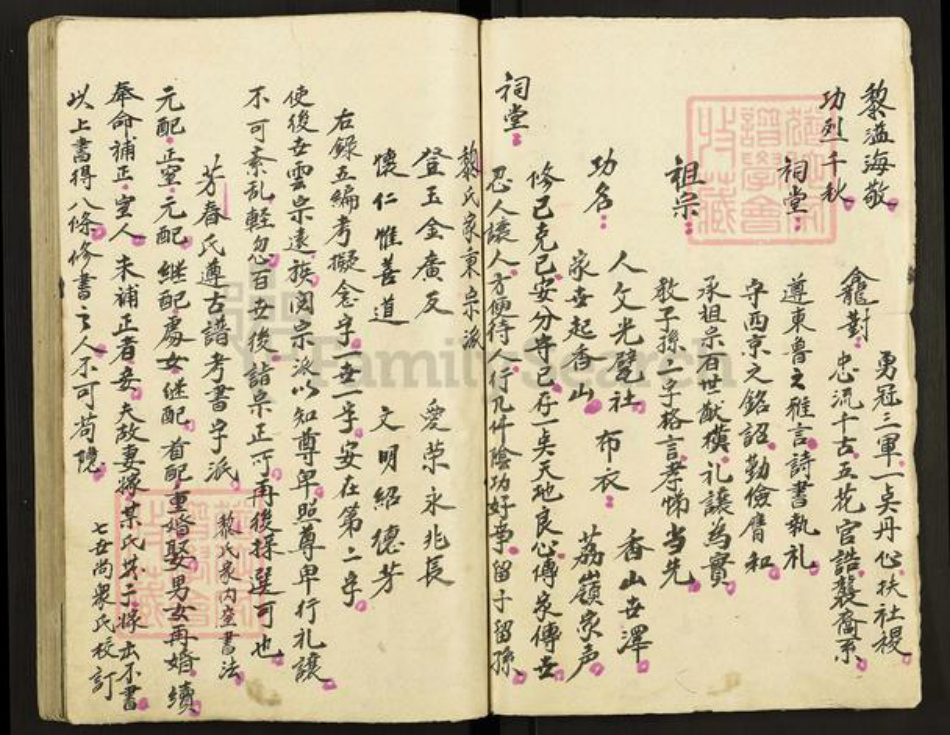 黎溢海敬
功烈千秋
龕對 勇冠三軍一点丹心扶社稷
忠流千古五花官誥襲裔系
祠堂 遵東魯之雅言詩書執礼
守西京之銘詔勤儉膺和
祖宗 承祖宗百世猷模礼讓為實
教子孫二字格言孝悌当先
功名 人文光壁社 香山世澤
家世起香山 布衣 荔嶺家声
修己克己安分守己存一点天地良心傳家傳世
祠堂 忍人讓人方便待人行几件陰功好事留子留孫
黎氏家東宗派
登玉金廣友 愛荣永兆長
懷仁惟善道 文明紹德芳
右錄五編考擬念字一世一字安在第二字
使後世雲宗遠族閱宗派以知尊卑照尊卑行礼讓
不可紊乱輕忽百世後諸宗正可再後採選可也
芳春氏遵古譜考書字派 黎氏家內查書法
元配正室元配继配處女继配首配重婚娶男女再婚續
奉命補正室人未補正者妾夫故妻嫁某氏其子嫁出不書
以上書得八條修書之人不可苟隐 七世尚衆氏校訂
FamilySearch